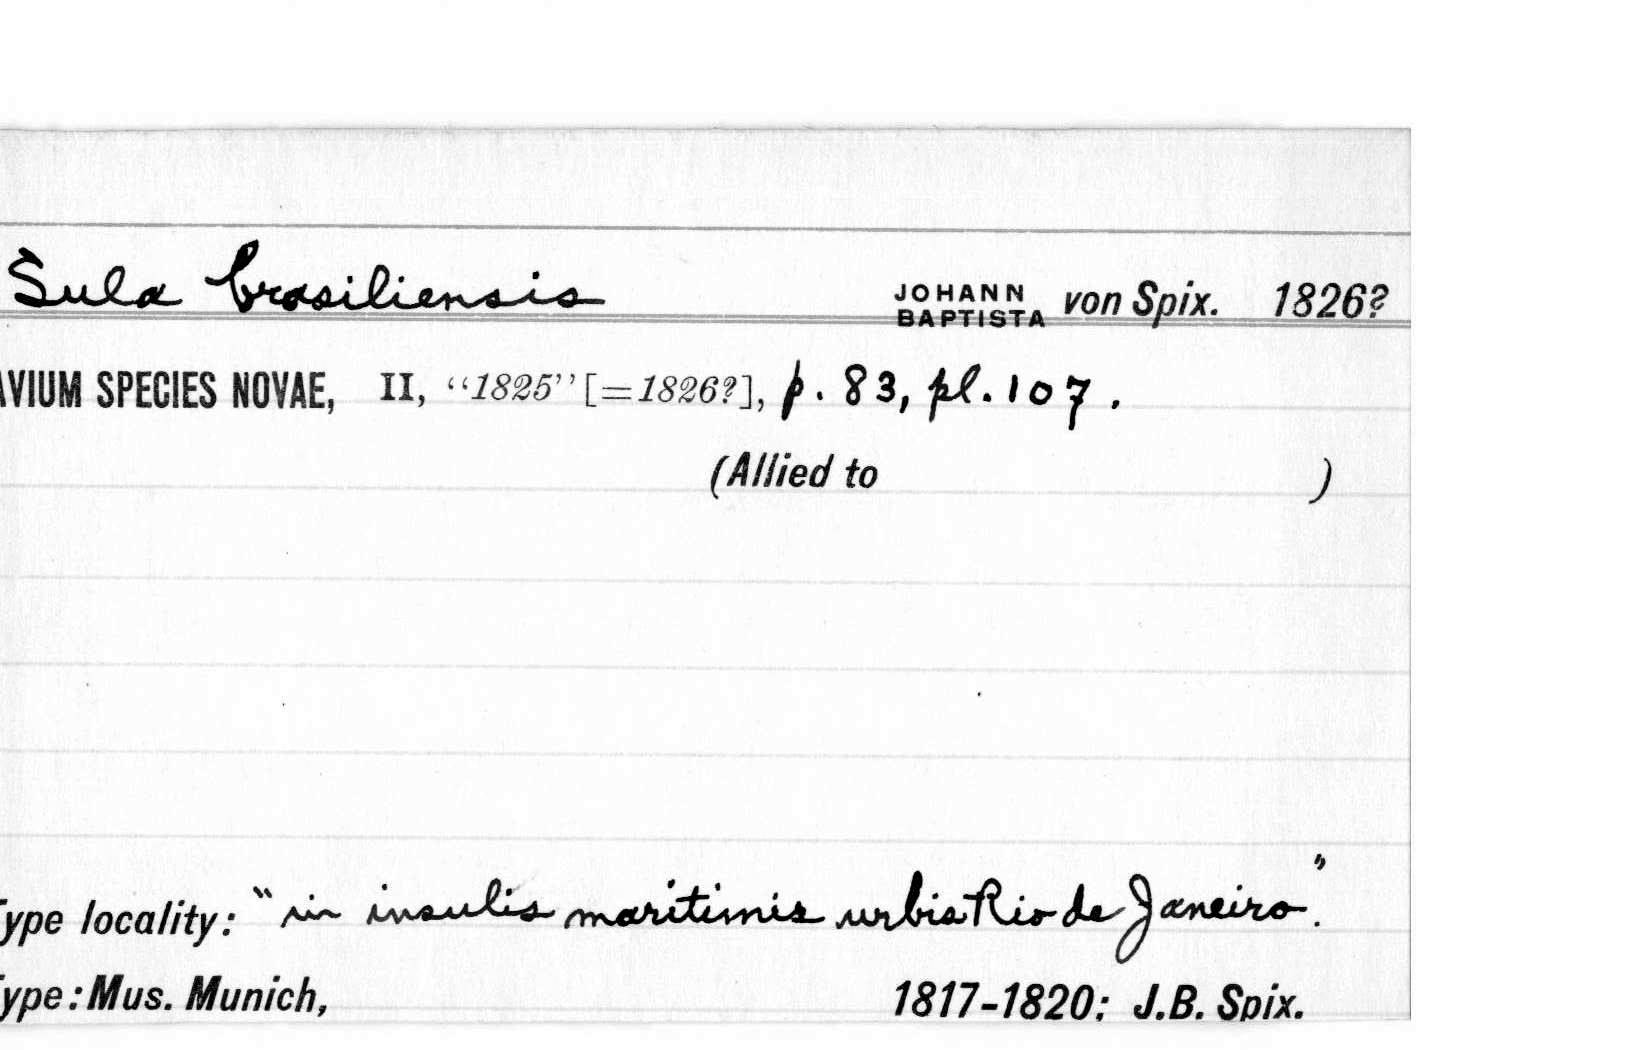 Sula brasiliensis JOHANN BAPTISTA von Spix. 1826?
AVIUM SPECIES NOVAE, II, "1825" [=1826?], p. 83, pl. 107.
(Allied to )
Type locality: "in insulis maritimis urbis Rio de Janeiro."
Type: Mus. Munich, 1817-1820; J.B. Spix.